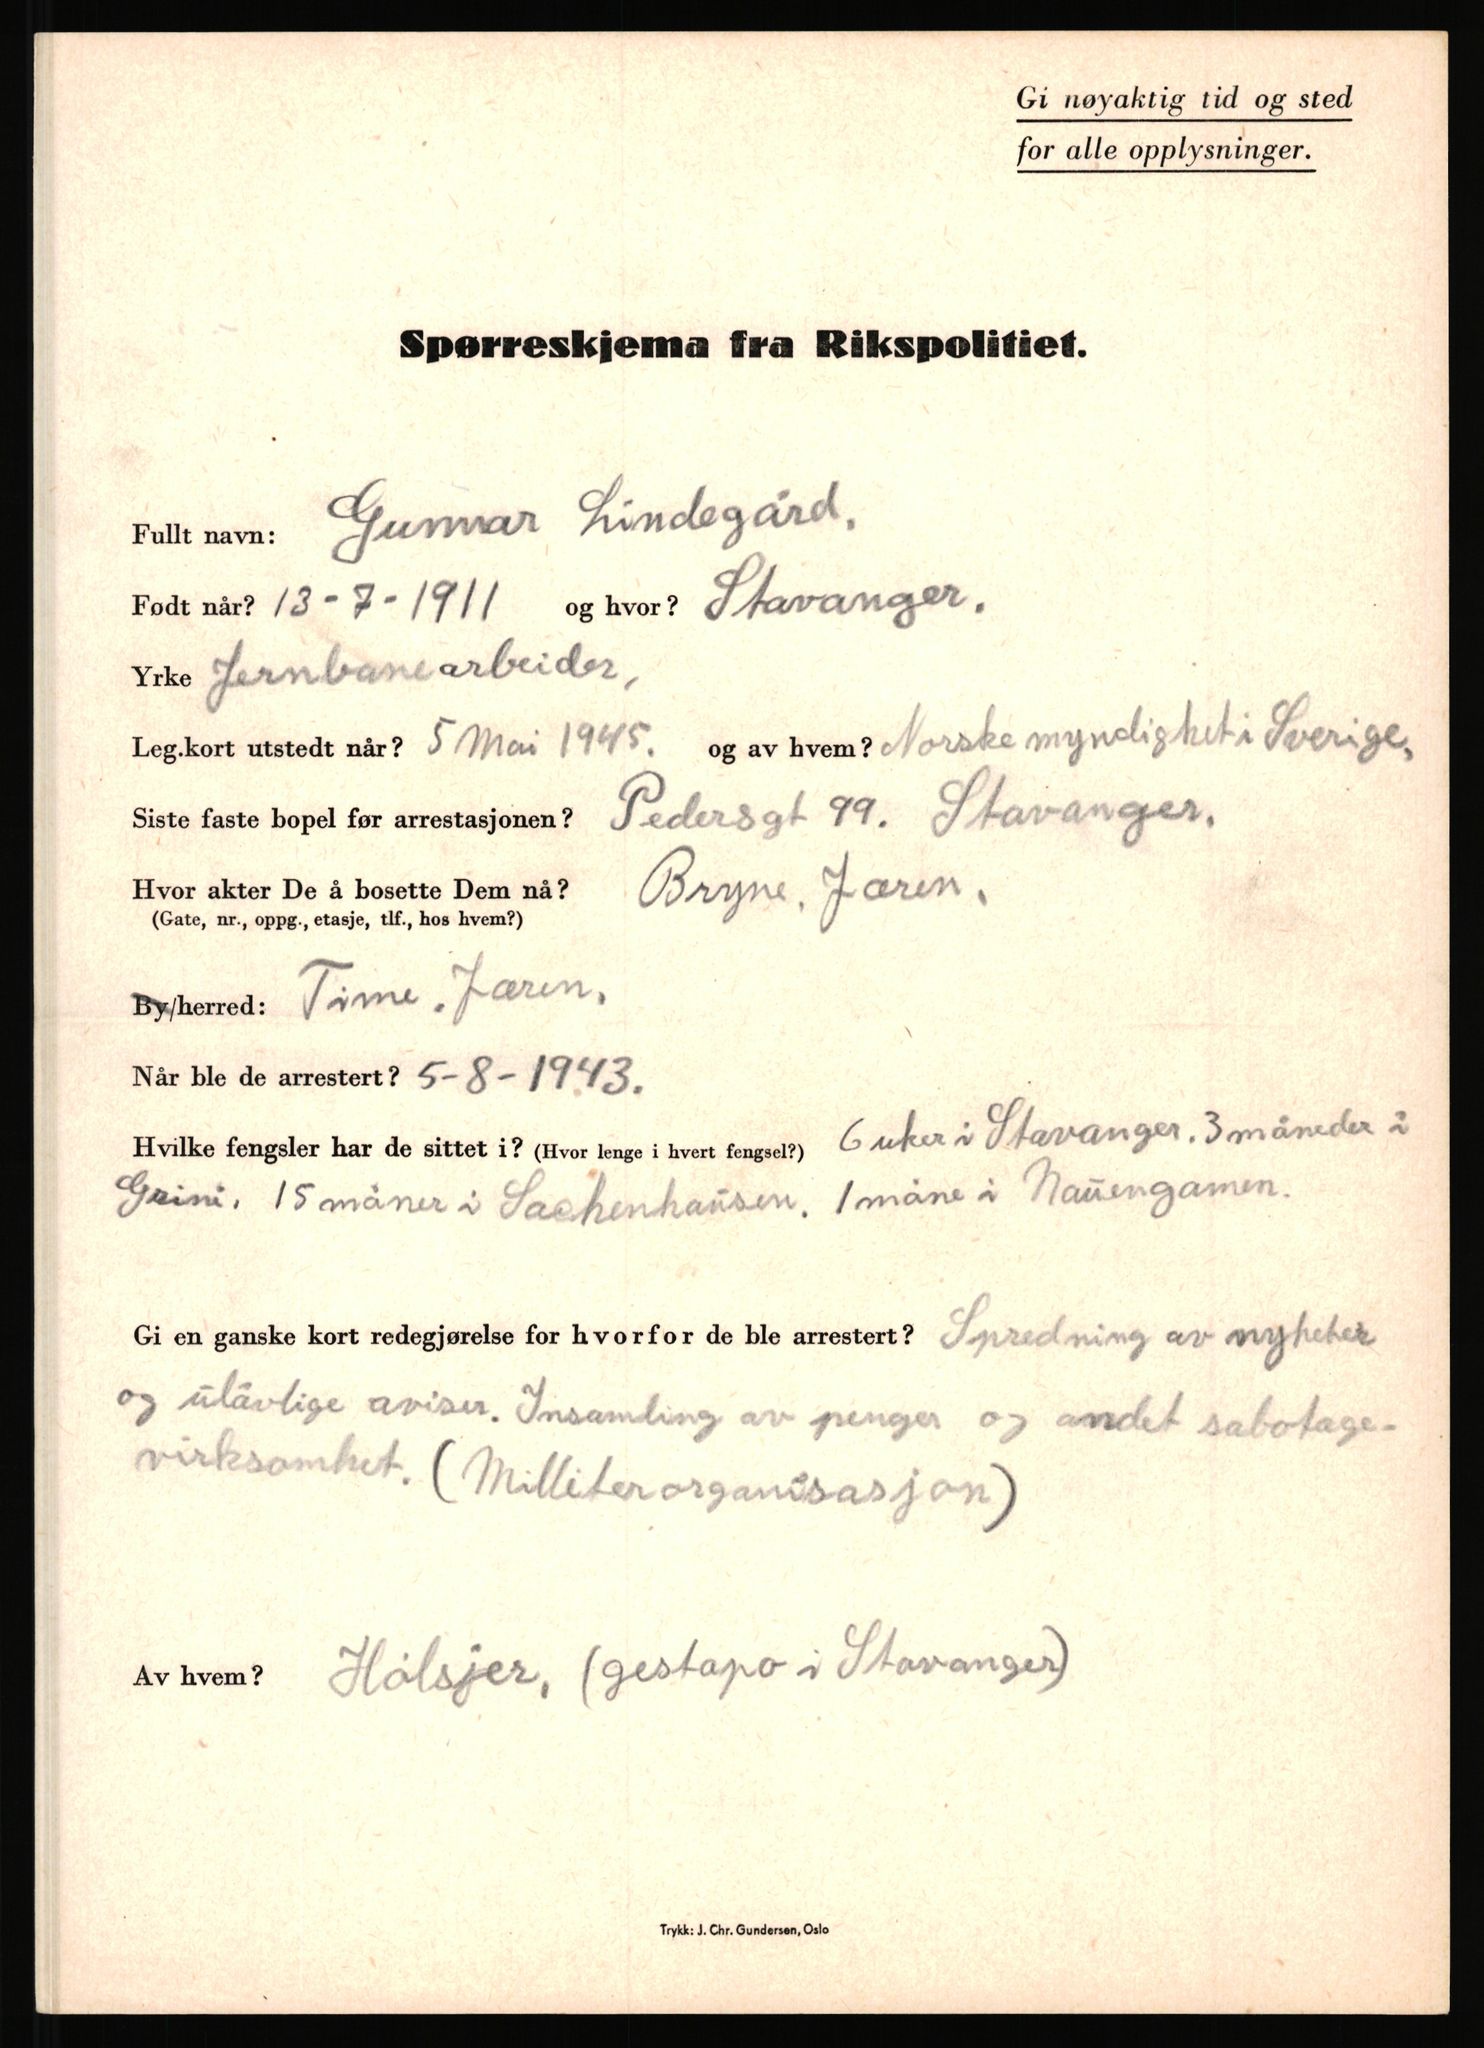 Gi nøyaktig tid og sted
for alle opplysninger.
Spørreskjema fra Rikspolitiet.
Fullt navn: Gunnar Lindegård.
Født når? 13-7-1911 og hvor? Stavanger.
Yrke Jernbanearbeider,
Leg.kort utstedt når? 5 Mai 1945. og av hvem? Norske myndighet i Sverige.
Siste faste bopel før arrestasjonen? Pedersgt 99. Stavanger.
Hvor akter De å bosette Dem nå? Bryne. Jæren.
(Gate, nr., oppg., etasje, tlf., hos hvem?)
By/herred: Time. Jæren.
Når ble de arrestert? 5-8-1943.
Hvilke fengsler har de sittet i? (Hvor lenge i hvert fengsel?) 6 uker i Stavanger. 3 måneder i
Grini. 15 måner i Sachenhaüsen. 1 måne i Naüengamen.
Gi en ganske kort redegjørelse for hvorfor de ble arrestert? Spredning av nyheter
og ülåvlige aviser. Insamling av penger og andet sabotage-
virksomhet. (Milliterorganisasjon)
Av hvem? Hålsjer, (gestapo i Stavanger)
Trykk: J. Chr. Gundersen, Oslo